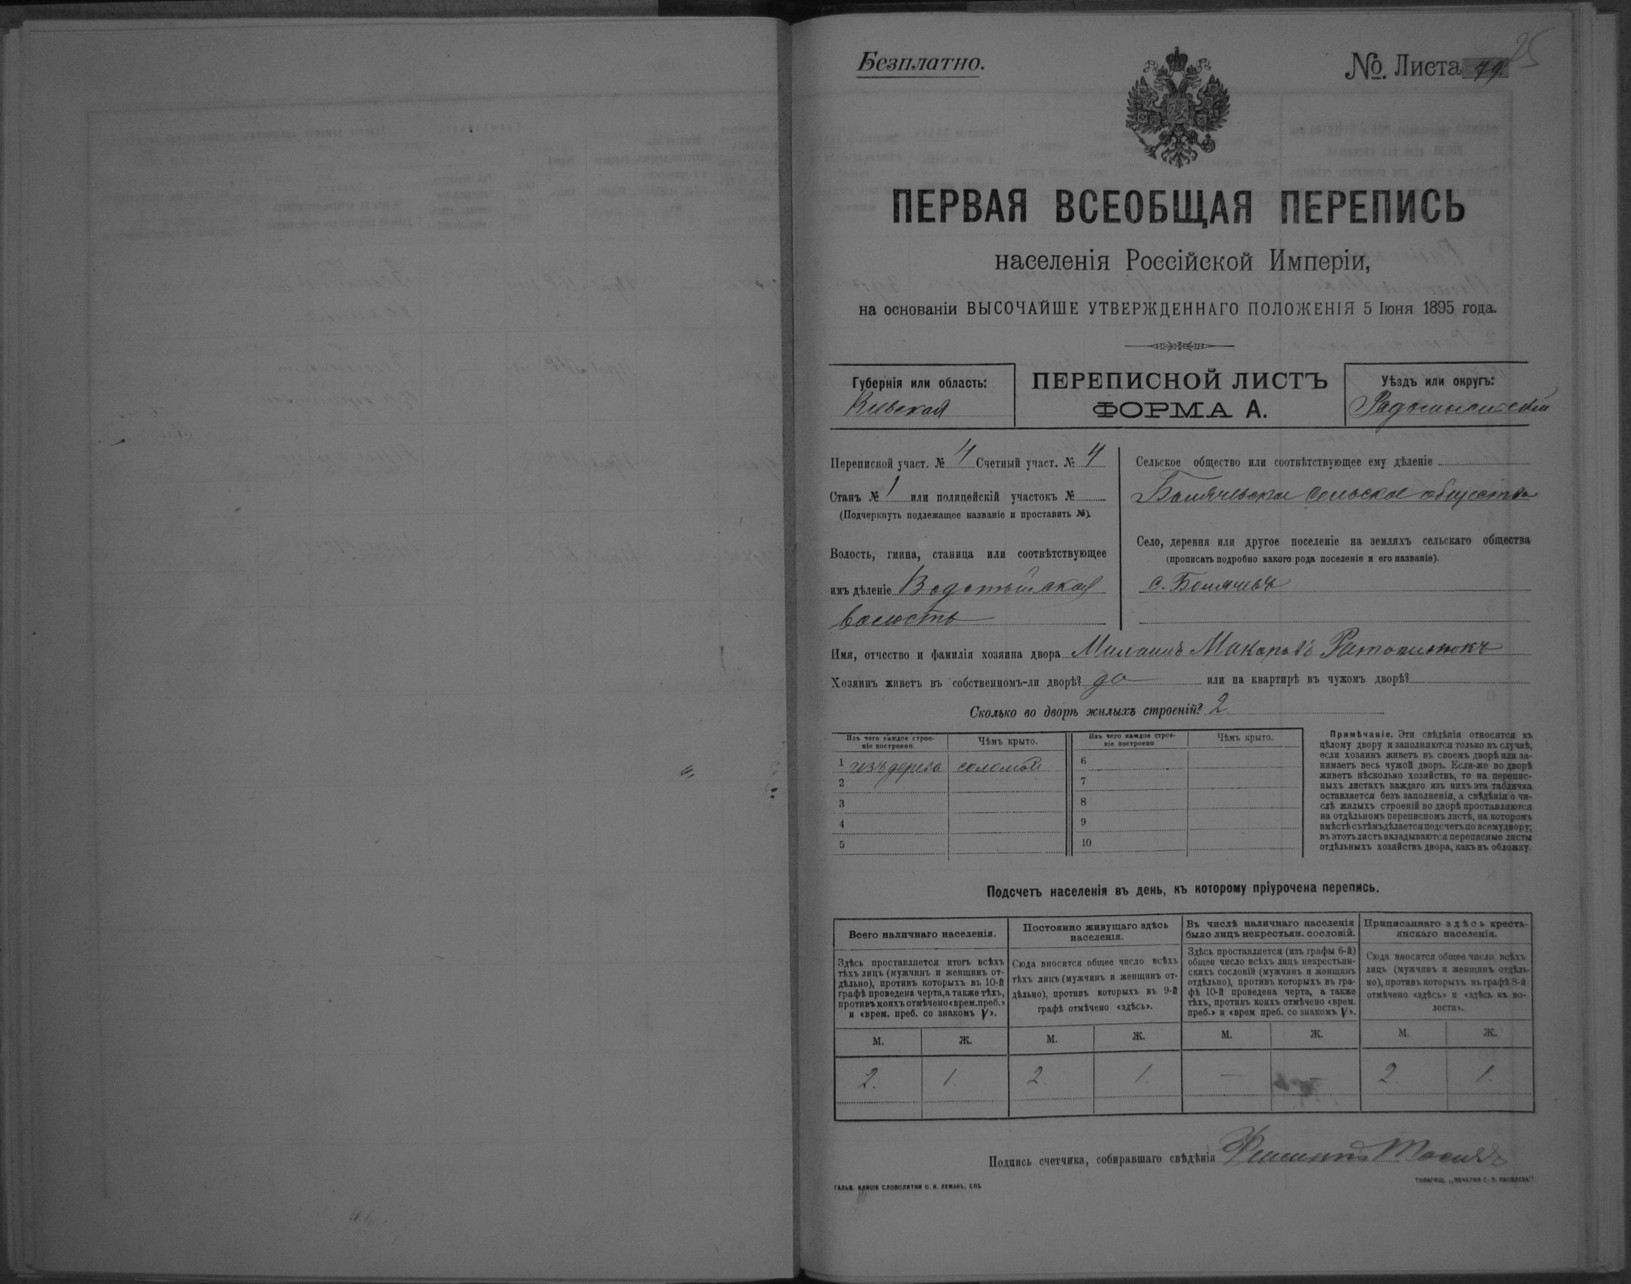 25
Безплатно.
№. Листа 49.
ПЕРВАЯ ВСЕОБЩАЯ ПЕРЕПИСЬ
населенія Россійской Имперіи,
на основаніи ВЫСОЧАЙШЕ УТВЕРЖДЕННАГО ПОЛОЖЕНІЯ 5 Іюня 1895 года.
Губернія или область:
Кіевская
ПЕРЕПИСНОЙ ЛИСТЪ
ФОРМА А.
Уѣздъ или округъ:
Радомысльскій
Переписной участ. № 4 Счетный участ. № 4
Станъ № 1 или полицейскій участокъ №
(Подчеркнуть подлежащее названіе и проставить №).
Волость, гмина, станица или соотвѣтствующее
имъ дѣленіе Водотыйская
волость
Сельское общество или соотвѣтствующее ему дѣленіе
сельское общество
Село, деревня или другое поселеніе на земляхъ сельскаго общества
(прописать подробно какого рода поселеніе и его названіе).
с.
Имя, отчество и фамилія хозяина двора Макаровъ
Хозяинъ живетъ въ собственномъ-ли дворѣ? да или на квартирѣ въ чужомъ дворѣ?
Сколько во дворѣ жилыхъ строеній? 2
Изъ чего каждое строе-
ніе построено.
Чѣмъ крыто.
Изъ чего каждое строе-
ніе построено.
Чѣмъ крыто.
1 изъ дерева соломой
2
3
4
5
6
7
8
9
10
Примѣчаніе. Эти свѣдѣнія относятся къ
цѣлому двору и заполняются только въ случаѣ,
если хозяинъ живетъ въ своемъ дворѣ или за-
нимаетъ весь чужой дворъ. Если-же во дворѣ
живетъ нѣсколько хозяйствъ, то на перепис-
ныхъ листахъ каждаго изъ нихъ эта табличка
оставляется безъ заполненія, а свѣдѣнія о чи-
слѣ жилыхъ строеній во дворѣ проставляются
на отдѣльномъ переписномъ листѣ, на которомъ
вмѣстѣ съ тѣмъ дѣлается подсчетъ по всему двору;
въ этотъ листъ вкладываются переписные листы
отдѣльныхъ хозяйствъ двора, какъ въ обложку.
Подсчетъ населенія въ день, къ которому пріурочена перепись.
Всего наличнаго населенія.
Здѣсь проставляется итогъ всѣхъ
тѣхъ лицъ (мужчинъ и женщинъ от-
дѣльно), противъ которыхъ въ 10-й
графѣ проведена черта, а также тѣхъ,
противъ коихъ отмѣчено «врем. преб.»
и «врем. преб. со знакомъ V».
Постоянно живущаго здѣсь
населенія.
Сюда вносится общее число всѣхъ
тѣхъ лицъ (мужчинъ и женщинъ от-
дѣльно), противъ которыхъ въ 9-й
графѣ отмѣчено «здѣсь».
Въ числѣ наличнаго населенія
было лицъ некрестьян. сословій.
Здѣсь проставляется (изъ графы 6-й)
общее число всѣхъ лицъ некрестьян-
скихъ сословій (мужчинъ и женщинъ
отдѣльно), противъ которыхъ въ гра-
фѣ 10-й проведена черта, а также
тѣхъ, противъ коихъ отмѣчено «врем.
преб.» и «врем преб. со знакомъ V».
Приписаннаго здѣсь кресть-
янскаго населенія.
Сюда вносится общее число всѣхъ
лицъ (мужчинъ и женщинъ отдѣль-
но), противъ которыхъ въ графѣ 8-й
отмѣчено «здѣсь» и «здѣсь въ во-
лости».
М. Ж. М. Ж. М. Ж. М. Ж.
2. 1. 2. 1. — — 2. 1.
Подпись счетчика, собиравшаго свѣдѣнія
ГАЛЬВ. КЛИШЕ СЛОВОЛИТНИ О. И. ЛЕМАНЪ, СПБ
ТОВАРИЩ. „ПЕЧАТНЯ С. П. ЯКОВЛЕВА"